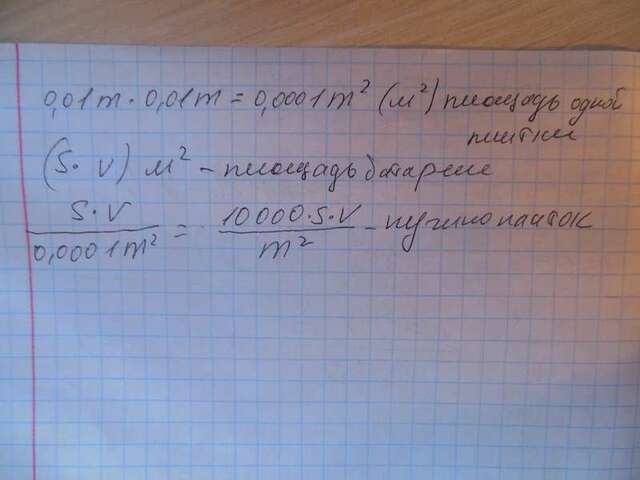 0,01m · 0,01m = 0,0001m² (м²) площадь одной
плитки
(S · V) м² - площадь
S·V / 0,0001m² = 10000·S·V / m² - нужно плиток